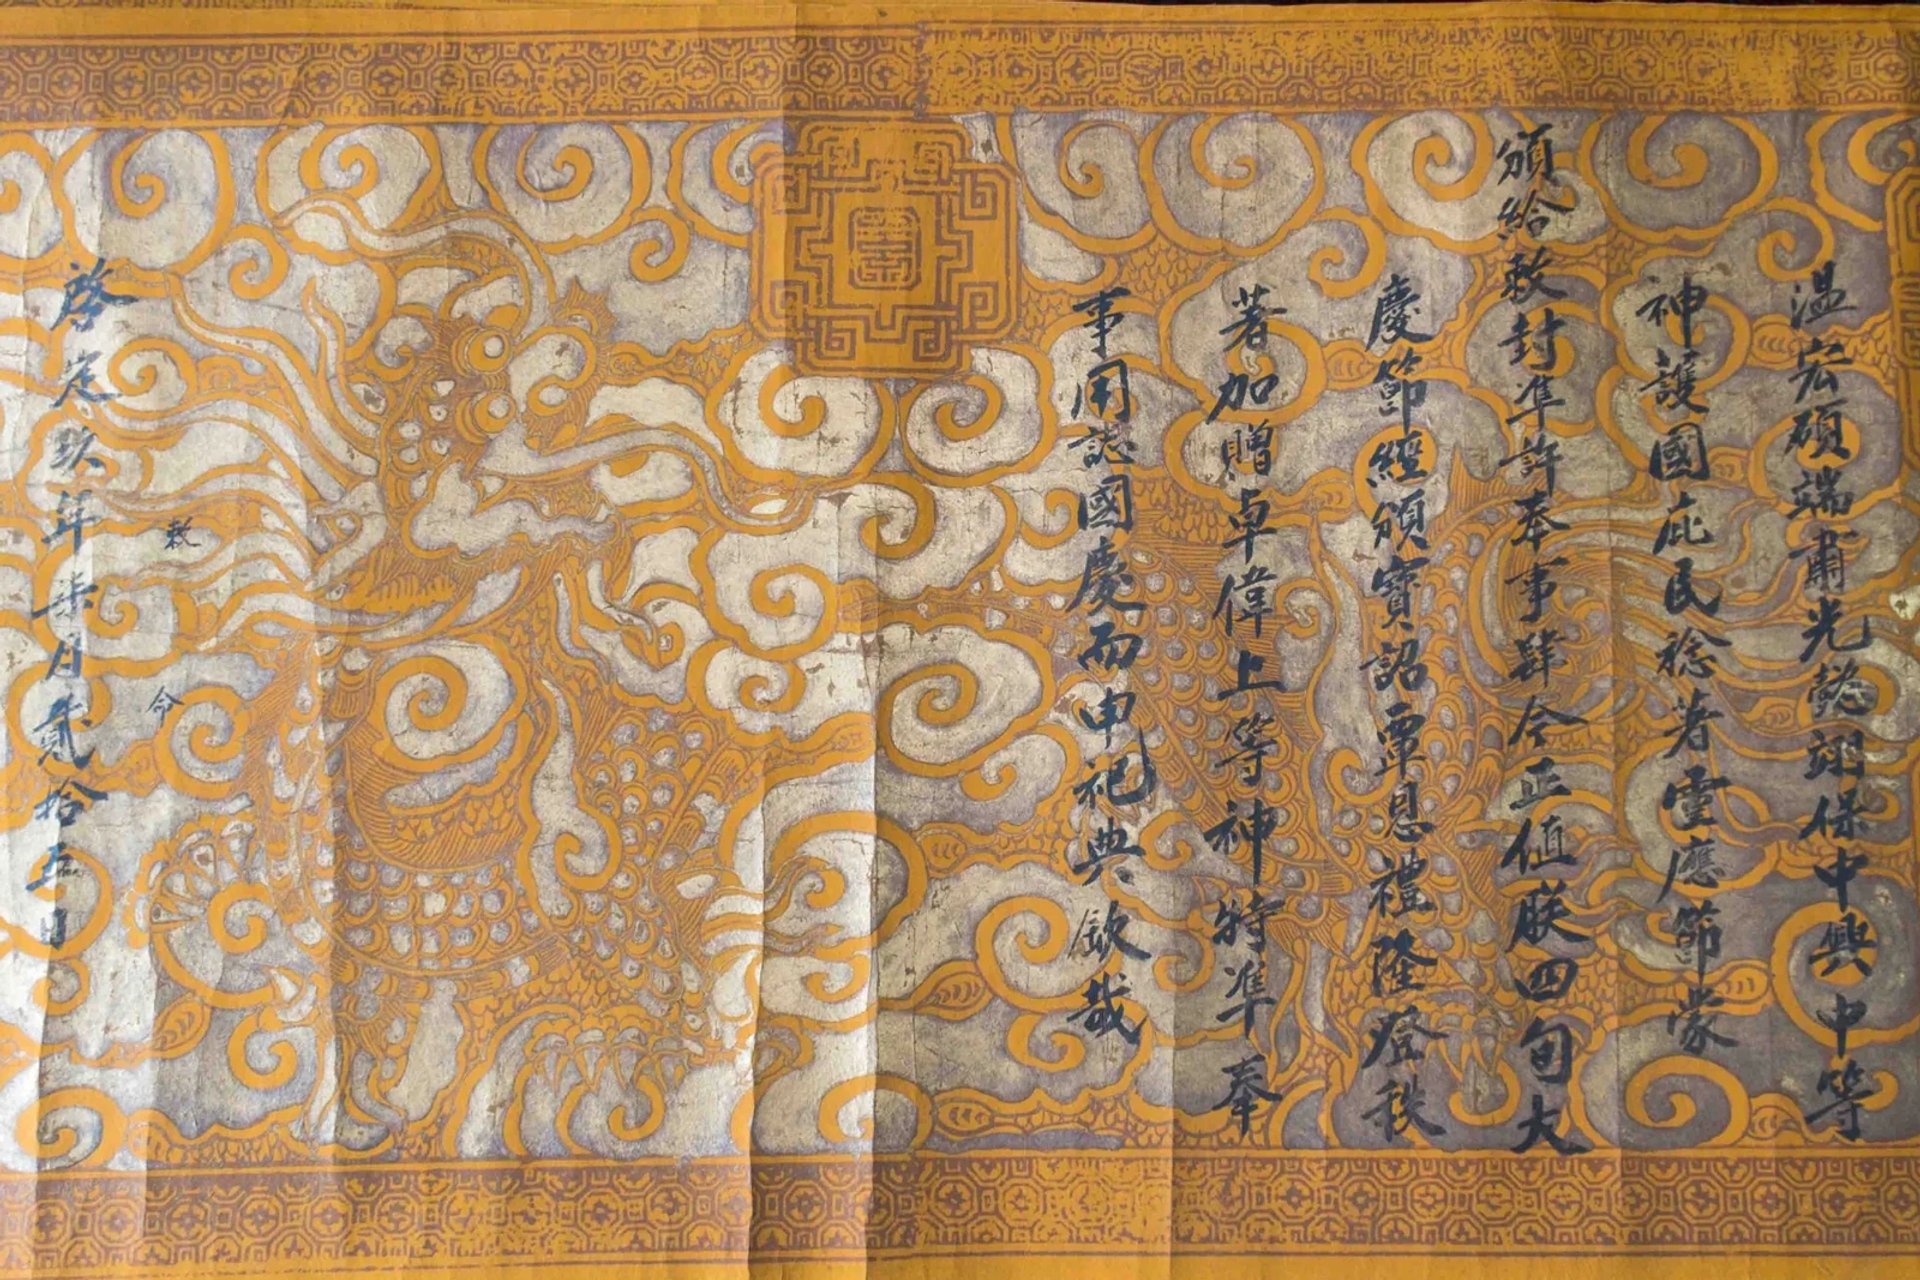 溫宏碩端肅光懿翊保中興中等
神護國庇民稔著靈應節蒙
頒給敕封準許奉事肆今正值朕四旬大
慶節經頒寶詔覃恩禮隆登秩
著加贈卓偉上等神特準奉
事用誌國慶而申祀典欽哉
敕命
啓定玖年柒月貳拾五日